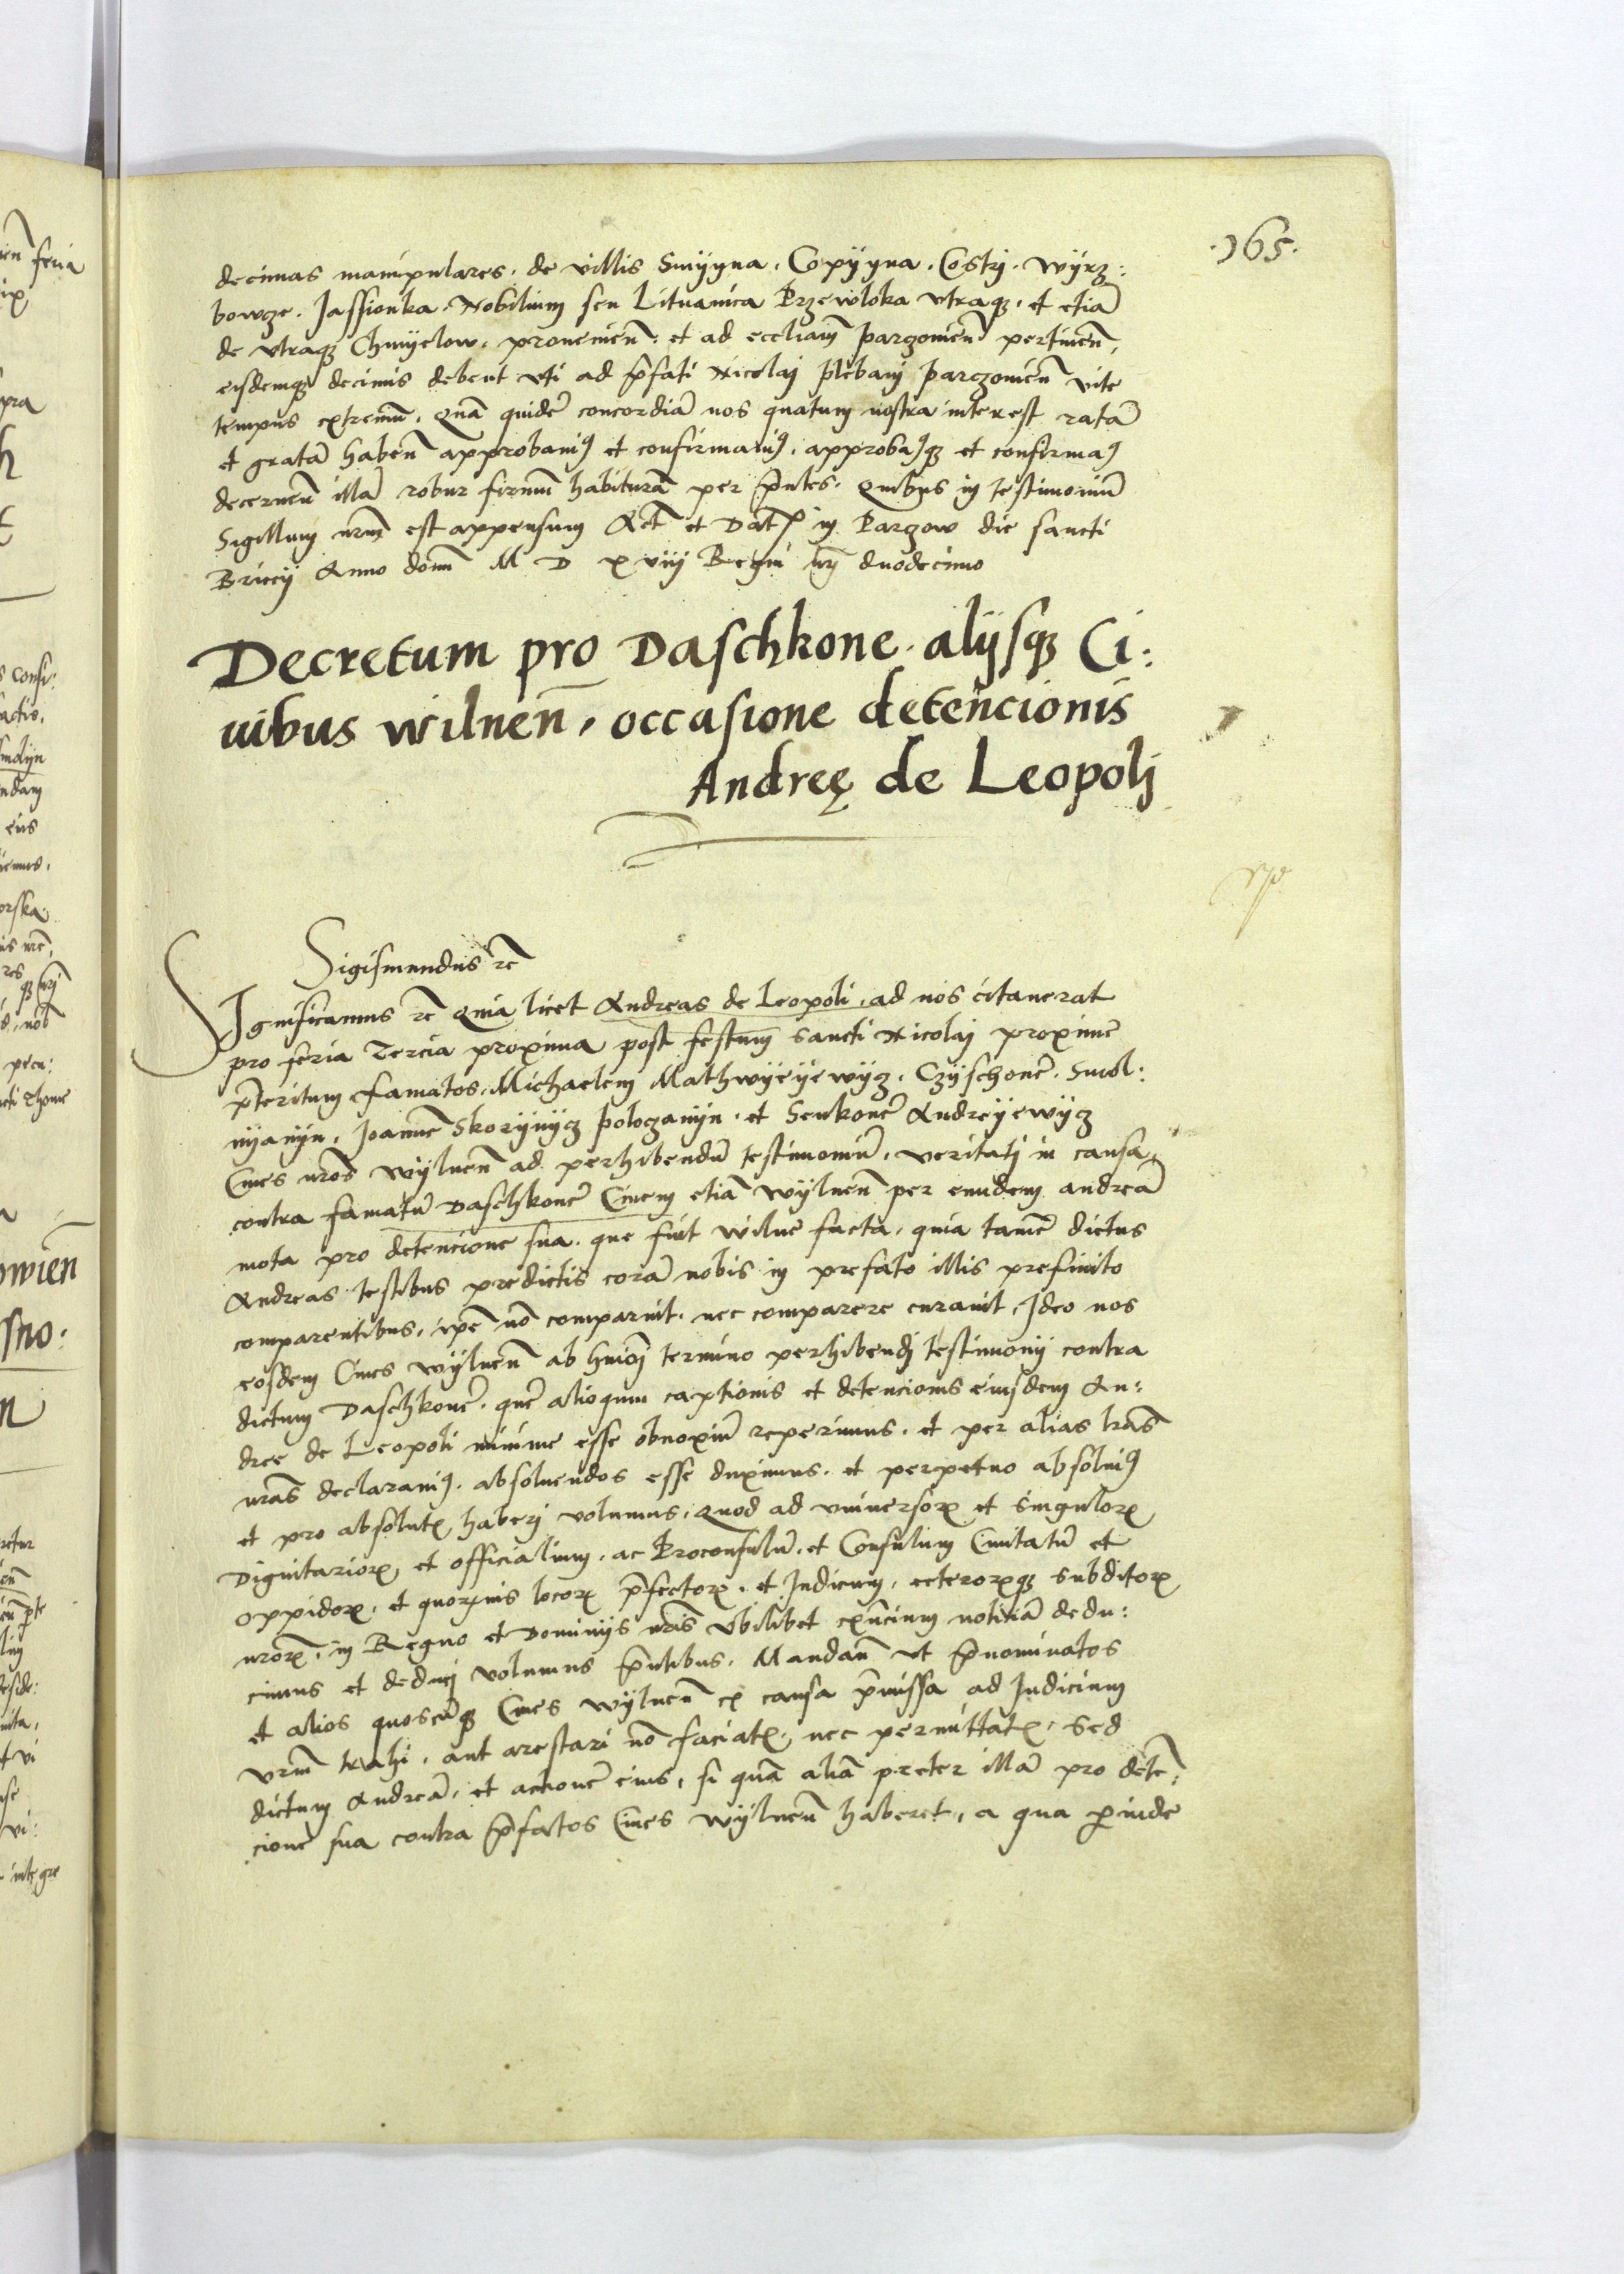 ·165·
decimas manipulares. de villis Smÿÿna. Copÿÿna. Costrj. Wÿrz:
bowze. Jassionka. Nobilium seu Lituanica Przewloka vtraqꝫ. et etiã
de vtraqꝫ Chmÿelow. prouenien̄. et ad eccliam̄ parzouien̄ pertinen̄,
eisdemqꝫ decimis debent vti ad p̄fati Nicolaj plebanj parczouien̄ vite
tempus extremũ. Quã quidẽ concordiã nos quatum nostra interest ratã
et gratã haben̄ approbauiꝯ et confirmauiꝯ. approbaꝯqꝫ et confirmaꝯ
decernen̄ illã robur firmũ habiturã per p̄ntes. Quibus in testimoniũ
Sigillum nr̄m est appensum Act̃ et Dat̃ in Parzow die sancti
Briccij Anno domi̅ M D xviij Regni nr̄j duodecimo
Decretum pro Daschkone. alijsqꝫ Ci:
uibus wilnen̄, occasione detencionis
Andreę de Leopolj
Sigismundus rc̃
Significamus rc̃ Quia licet Andreas de Leopoli. ad nos citauerat
pro feria Tercia proxima post festum sancti Nicolaj proxime
p̄teritum famatos. Michaelem Mathwÿeÿewÿcz. Czÿschonẽ. Smol:
nÿanÿn. Joannẽ Skorÿnÿcz poloczanÿn. et Senkonẽ Andreÿewÿcz
Ciues nr̄os wÿlnen̄ ad perhibendũ testimoniũ. veritatj in causa.
contra famatũ Daschkonẽ Ciuem etiã wÿlnen̄ per eundem andreã
mota pro detencione sua. que fuit wilne facta. quia tamẽ dictus
Andreas testibus predictis corã nobis in prefato illis prefinito
comparentibus. ip̄e nõ comparuit. nec comparere curauit. Ideo nos
eosdem Ciues wÿlnen̄ ab hm̄oi termino perhibendj testimonij contra
dictum Daschkonẽ. quẽ alioquin captionis et detencionis eiusdem An:
dree de Leopoli minime esse obnoxiũ reperimus. et per alias lr̄as
nr̄as declarauiꝯ. absoluendos esse duximus. et perpetuo absoluiꝯ
et pro absolutꝭ haberj volumus. Quod ad vniuersorꝝ et singulorꝝ
Dignitariorꝝ et officialium. ac Proconsulũ. et Consulum Ciuitatũ et
oppidorꝝ. et quorũuis locorꝝ p̄fectorꝝ. et Judicum. ceterorꝝqꝫ subditorꝝ
nr̄orꝝ. in Regno et Dominijs nr̄is vbilibet existencium noticiã dedu:
cimus et deducj volumus p̄ntibus. Mandan̄ vt p̄nominatos
et alios quoscũqꝫ Ciues wÿlnen̄ ex causa p̄missa ad Judicium
vr̄m trahi. aut arestari nõ faciatꝭ. nec permittatꝭ. Sed
dictum Andreã. et actionẽ eius, si quã aliã preter illã pro deten̄:
cione sua contra p̄fatos Ciues wÿlnen̄ haberet. a qua ꝓinde